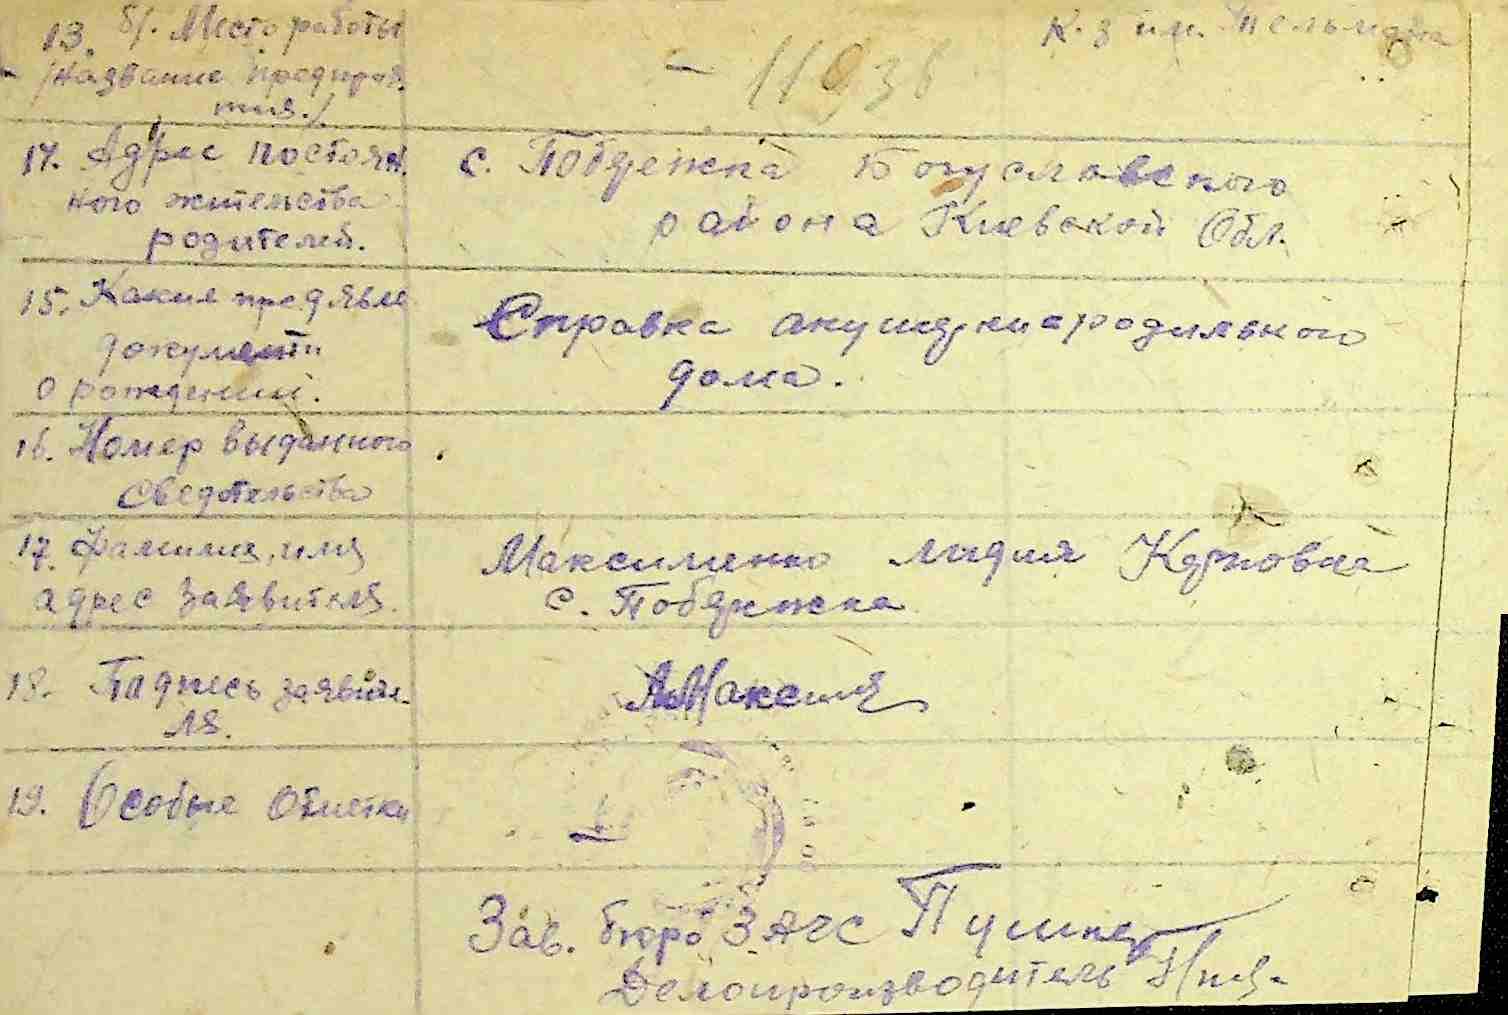 13. б/. Место работы
/название предприя.
тия./
- 11938
К-з им. Тельмана
14. Адрес постоян.
ного жительства
родителей.
с. Побережка Богуславского
района Киевской Обл.
15. Какие предъявле
документы
о рождении.
Справка акушеркиародильного
дома.
16. Номер выданного
Сведетельства
17. Фамилия, имя
адрес заявителя.
Максименко Лидия Карповна
с. Побережка
18. Падпись заявите-
ля.
19. Особые Отметки
Зав. бюро ЗАГС
Делопроизводитель